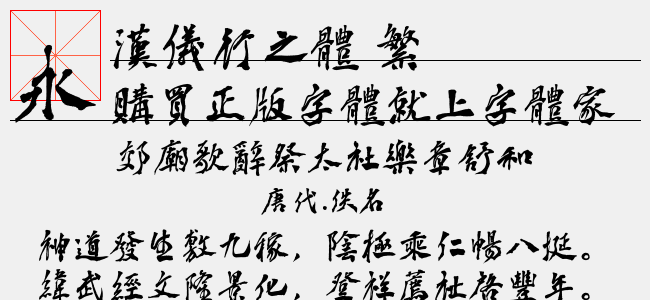 永
漢儀行之體 繁
購買正版字體就上字體家
郊廟歌辭祭太社樂章舒和
唐代.佚名
神道發生敷九稼，陰極乘仁暢八挺。
緯武經文隆景化，登祥薦祉啓豐年。